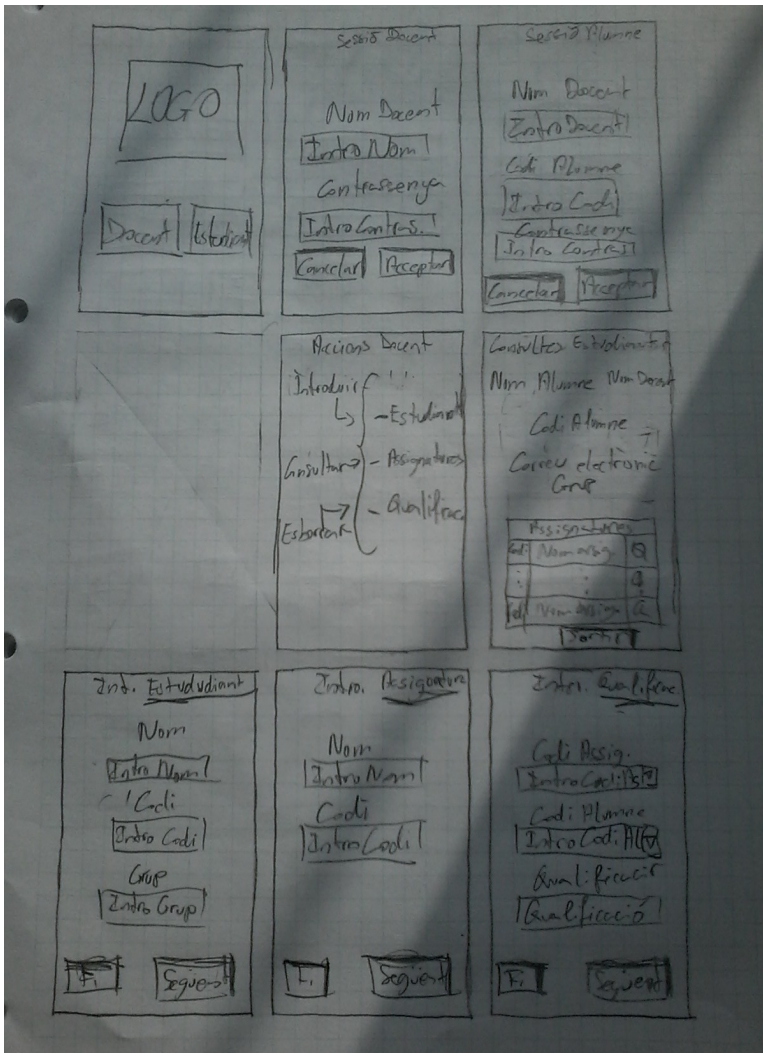 LOGO
Docent Estudiant
Sessió Docent
Nom Docent
Intro Nom
Contrassenya
Intro Contras.
Cancelar Acceptar
Sessió Alumne
Nom Docent
Intro Docent
Codi Alumne
Intro Codi
Contrassenya
Intro Contras
Cancelar Acceptar
Accions Docent
Introduir
- Estudiant
Consultar - Assignatures
- Qualificac
Esborrar
Consultes Estudiants
Nom Alumne Nom Docent
Codi Alumne
Correu electrònic
Grup
Assignatures
Codi Nom assig. Q
: : Q
Codi Nom Assign Q
Sortir
Int. Estududiant
Nom
Intro Nom
Codi
Intro Codi
Grup
Intro Grup
Fi Següent
Intro. Assignatura
Nom
Intro Nom
Codi
Intro Codi
Fi Següent
Intro. Qualificac
Codi Assig.
Intro Codi As
Codi Alumne
Intro Codi Al
Qualificació
Qualificació
Fi Següent